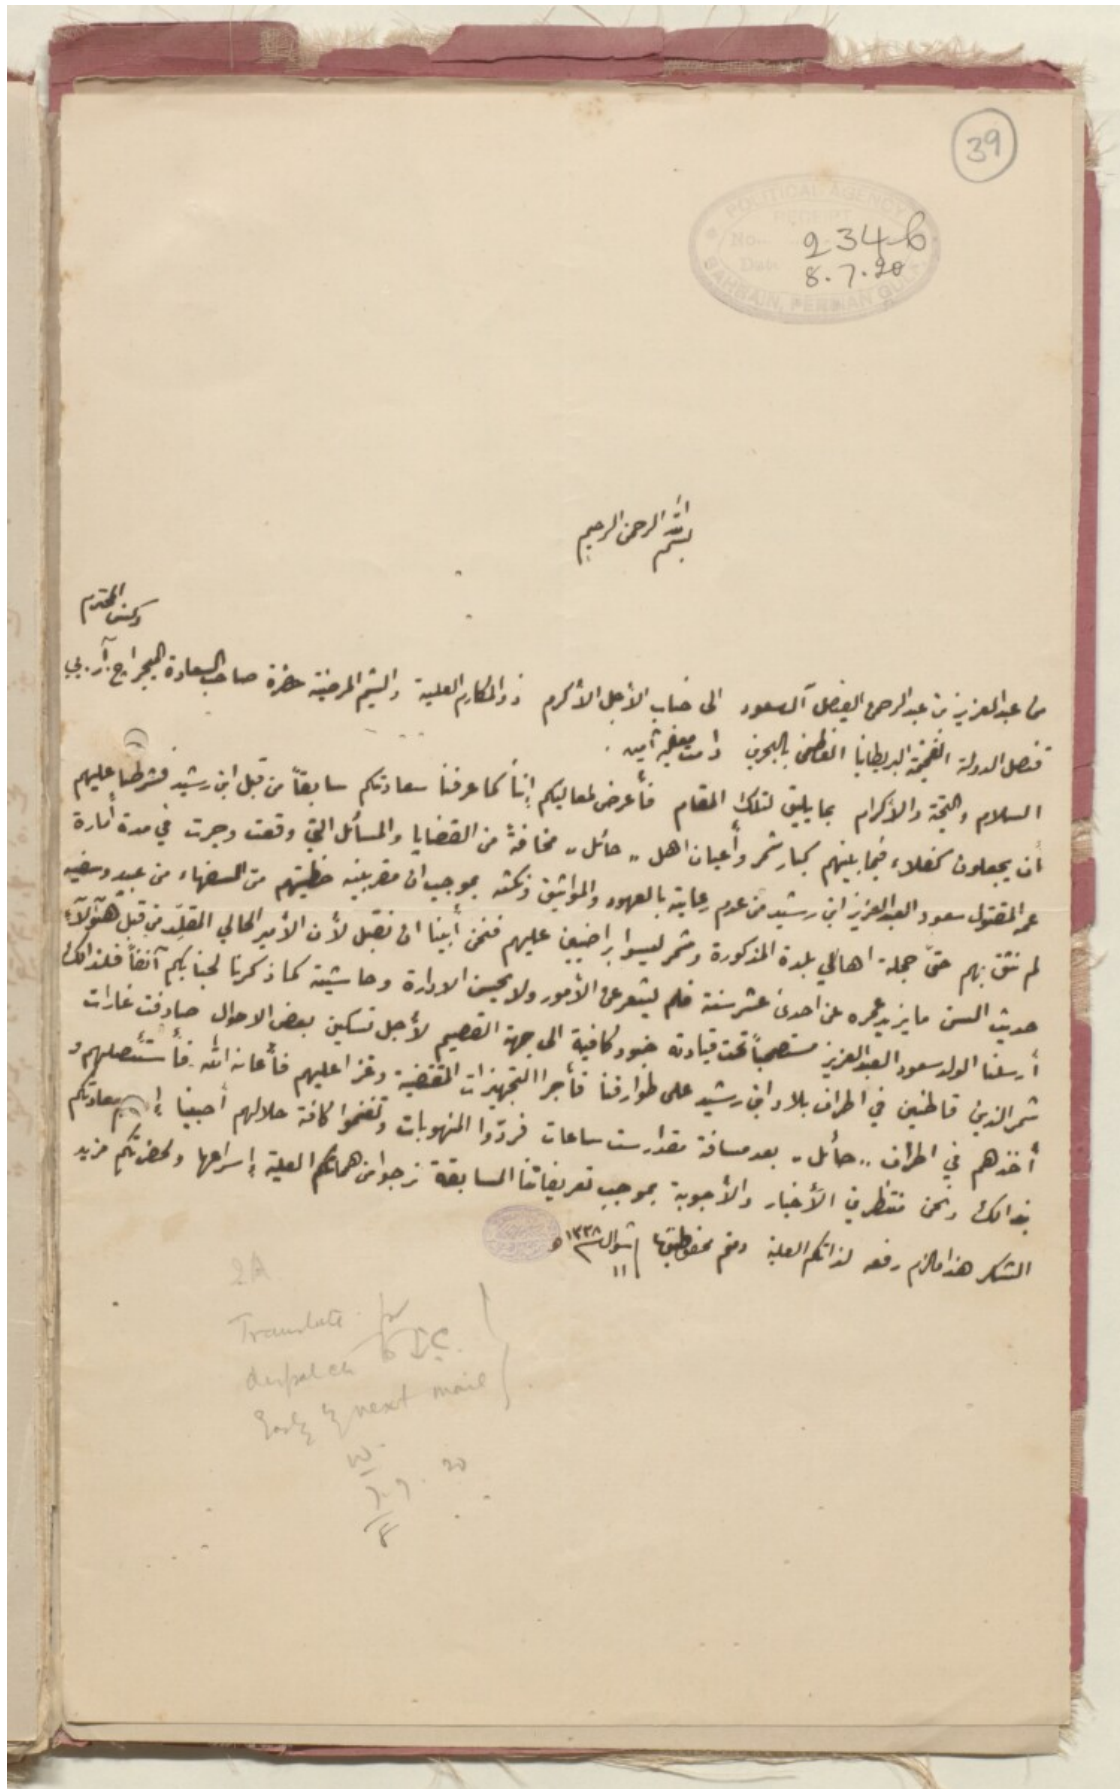 39
POLITICAL AGENCY
RECEIPT
No. 2346
Date 8.7.20
BAHRAIN, PERSIAN GULF
بسم الله الرحمن الرحيم
دكسن المحترم
من عبد العزيز بن عبد الرحمن الفيصل آل سعود الى جناب الأجل الأكرم ذو المكارم العلية والشيم المرضية حضرة صاحب السعادة الميجر اج. آر. بي
قنصل الدولة الفخيمة البريطانيا العظمى بالبحرين دامت معاليه آمين.
السلام والتحية والاكرام بما يليق لتلك المقام فأعرض لمعاليكم إننا كما عرفنا سعادتكم سابقاً من قبل ابن رشيد فشرطنا عليهم
أن يجعلون كفلاء فيما بينهم كبار شمر وأعيان اهل ,, حائل ,, مخافةً من القضايا والمسائل التي وقعت وجرت في مدة أمارة
عمه المقتول سعود العبد العزيز ابن رشيد من عدم رعايته بالعهود والمواثيق ونكثه بموجب ان مقربينه خطيتهم من السفهاء من عبيد وسفيه
لم نثق بهم حتى جملة اهالي بلدة المذكورة وشمر ليسوا براضيين عليهم فنحن أبينا ان نقبل لأن الأمير الحالي المقلد من قبل هؤلاء
حديث السن ما يزيد عمره عن احدى عشر سنة فلم ليشعر عن الأمور ولا يحسن الادارة وحاشيته كما ذكرنا لجنابكم آنفاً فلذالك
أرسلنا الولد سعود العبد العزيز مستصحباً تحت قيادته جنود كافية الى جهة القصيم لأجل تسكين بعض الاحوال صادفت غارات
شمر الذين قاطنين في اطراف بلاد ابن رشيد على طوارفنا فأجرا التجهيزات المقتضية وغزا عليهم فأعانه الله فأستئصلهم و
أخذهم في اطراف ,, حائل ,, بعد مسافة مقدار ست ساعات فردّوا المنهوبات وتغنموا كافة حلالهم أحببنا سعادتكم
بذالك ونحن منتظرين الأخبار والأجوبة بموجب تعريفاتنا السابقة نرجوا من هممكم العلية إسراعها ولحضرتكم مزيد
الشكر هذا مالزم رفعه لذاتكم العلية ودمتم ١١ شوال ١٣٣٨ه
2A
Translate for
despatch to I.C.
Early by next mail